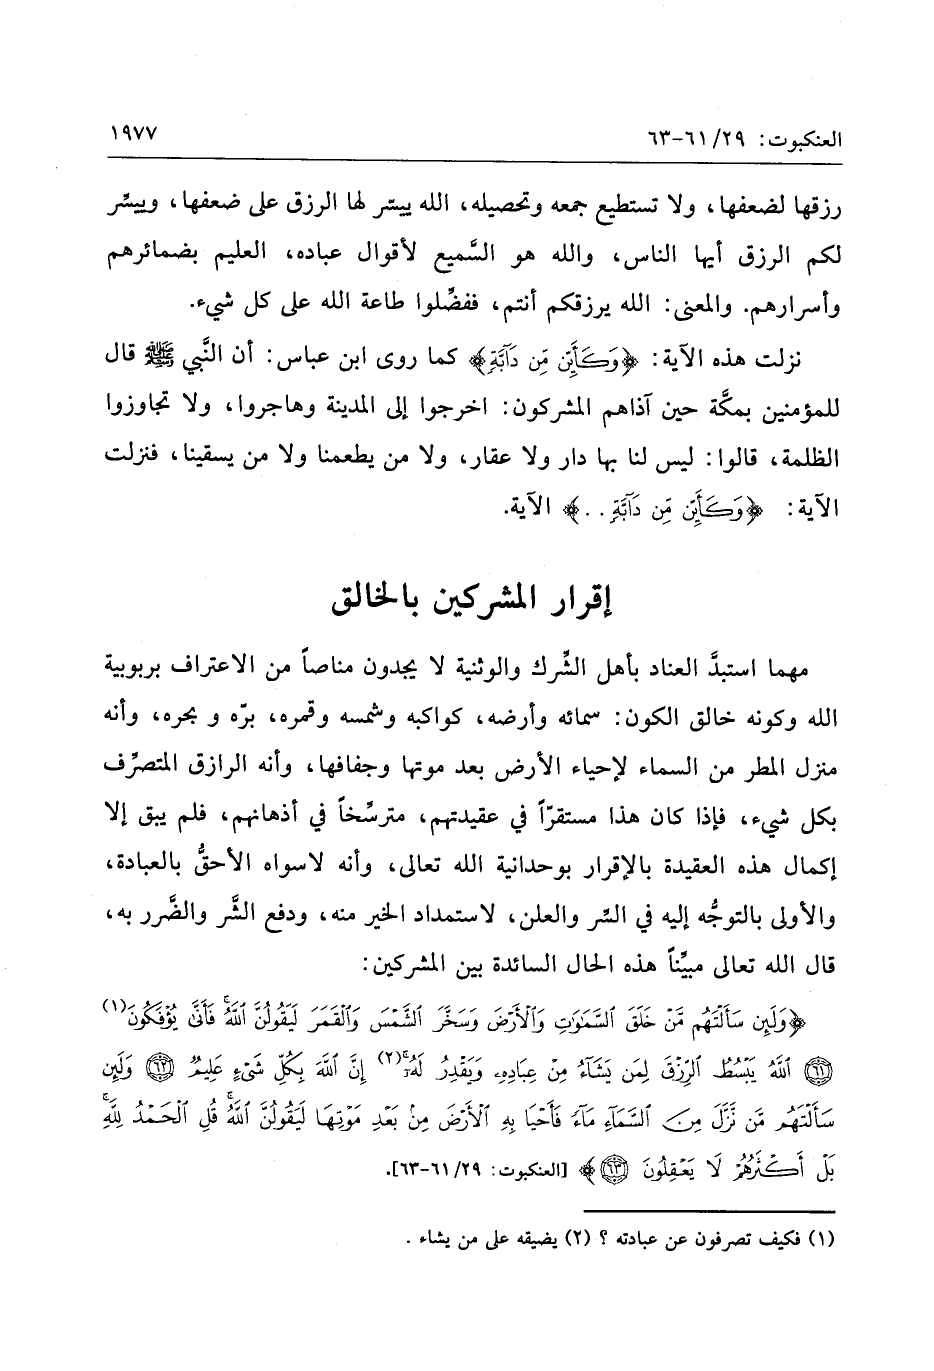 العنكبوت: ٢٩/ ٦١-٦٣ ١٩٧٧
رزقها لضعفها، ولا تستطيع جمعه وتحصيله، الله ييسر لها الرزق على ضعفها، وييسِّر
لكم الرزق أيها الناس، والله هو السَّميع لأقوال عباده، العليم بضمائرهم
وأسرارهم. والمعنى: الله يرزقكم أنتم، ففضِّلوا طاعة الله على كل شيء.
نزلت هذه الآية: ﴿وَكَأَيِّن مِّن دَآبَّةٍ﴾ كما روى ابن عباس: أن النَّبي ﷺ قال
للمؤمنين بمكَّة حين آذاهم المشركون: اخرجوا إلى المدينة وهاجروا، ولا تجاوزوا
الظلمة، قالوا: ليس لنا بها دار ولا عقار، ولا من يطعمنا ولا من يسقينا، فنزلت
الآية: ﴿وَكَأَيِّن مِّن دَآبَّةٍ . .﴾ الآية.
إقرار المشركين بالخالق
مهما استبدَّ العناد بأهل الشِّرك والوثنية لا يجدون مناصاً من الاعتراف بربوبية
الله وكونه خالق الكون: سمائه وأرضه، كواكبه وشمسه وقمره، برّه و بحره، وأنه
منزل المطر من السماء لإحياء الأرض بعد موتها وجفافها، وأنه الرازق المتصرِّف
بكل شيء، فإذا كان هذا مستقرّاً في عقيدتهم، مترسِّخاً في أذهانهم، فلم يبق إلا
إكمال هذه العقيدة بالإقرار بوحدانية الله تعالى، وأنه لاسواه الأحقُّ بالعبادة،
والأولى بالتوجُّه إليه في السِّر والعلن، لاستمداد الخير منه، ودفع الشَّر والضَّرر به،
قال الله تعالى مبيِّناً هذه الحال السائدة بين المشركين:
﴿وَلَئِن سَأَلْتَهُم مَّنْ خَلَقَ ٱلسَّمَٰوَٰتِ وَٱلْأَرْضَ وَسَخَّرَ ٱلشَّمْسَ وَٱلْقَمَرَ لَيَقُولُنَّ ٱللَّهُ ۖ فَأَنَّىٰ يُؤْفَكُونَ(١)
٦١ ٱللَّهُ يَبْسُطُ ٱلرِّزْقَ لِمَن يَشَآءُ مِنْ عِبَادِهِۦ وَيَقْدِرُ لَهُۥٓ ۚ(٢) إِنَّ ٱللَّهَ بِكُلِّ شَىْءٍ عَلِيمٌ ٦٢ وَلَئِن
سَأَلْتَهُم مَّن نَّزَّلَ مِنَ ٱلسَّمَآءِ مَآءً فَأَحْيَا بِهِ ٱلْأَرْضَ مِنۢ بَعْدِ مَوْتِهَا لَيَقُولُنَّ ٱللَّهُ ۚ قُلِ ٱلْحَمْدُ لِلَّهِ ۚ
بَلْ أَكْثَرُهُمْ لَا يَعْقِلُونَ ٦٣﴾ [العنكبوت: ٢٩/ ٦١-٦٣].
(١) فكيف تصرفون عن عبادته ؟ (٢) يضيقه على من يشاء .